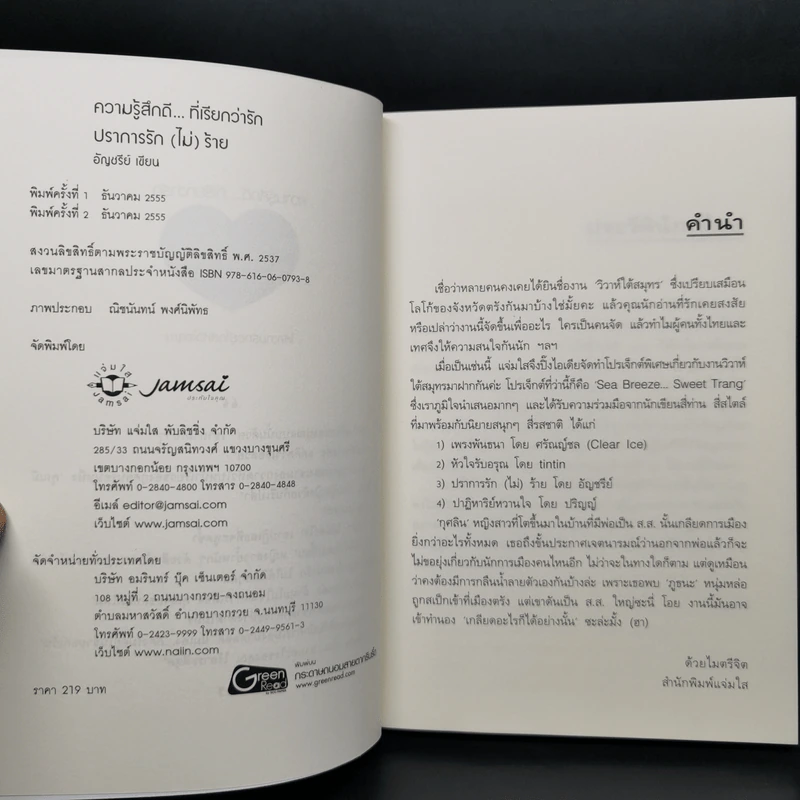 ความรู้สึกดี... ที่เรียกว่ารัก
ปราการรัก (ไม่) ร้าย
อัญชรีย์ เขียน
พิมพ์ครั้งที่ 1 ธันวาคม 2555
พิมพ์ครั้งที่ 2 ธันวาคม 2555
สงวนลิขสิทธิ์ตามพระราชบัญญัติลิขสิทธิ์ พ.ศ. 2537
เลขมาตรฐานสากลประจำหนังสือ ISBN 978-616-06-0793-8
ภาพประกอบ ณิชนันทน์ พงศ์นิพัทธ
จัดพิมพ์โดย
แจ่มใส
JAMSAI
Jamsai
ประทับในคุณ
บริษัท แจ่มใส พับลิชชิ่ง จำกัด
285/33 ถนนจรัญสนิทวงศ์ แขวงบางขุนศรี
เขตบางกอกน้อย กรุงเทพฯ 10700
โทรศัพท์ 0-2840-4800 โทรสาร 0-2840-4848
อีเมล์ editor@jamsai.com
เว็บไซต์ www.jamsai.com
จัดจำหน่ายทั่วประเทศโดย
บริษัท อมรินทร์ บุ๊ค เซ็นเตอร์ จำกัด
108 หมู่ที่ 2 ถนนบางกรวย-จงถนอม
ตำบลมหาสวัสดิ์ อำเภอบางกรวย จ.นนทบุรี 11130
โทรศัพท์ 0-2423-9999 โทรสาร 0-2449-9561-3
เว็บไซต์ www.naiin.com
Green
Read
พิมพ์บน
กระดาษถนอมสายตากรีนรี้ด
www.greenread.com
ราคา 219 บาท
คำนำ
เชื่อว่าหลายคนคงเคยได้ยินชื่องาน 'วิวาห์ใต้สมุทร' ซึ่งเปรียบเสมือน
โลโก้ของจังหวัดตรังกันมาบ้างใช่มั้ยคะ แล้วคุณนักอ่านที่รักเคยสงสัย
หรือเปล่าว่างานนี้จัดขึ้นเพื่ออะไร ใครเป็นคนจัด แล้วทำไมผู้คนทั้งไทยและ
เทศจึงให้ความสนใจกันนัก ฯลฯ
เมื่อเป็นเช่นนี้ แจ่มใสจึงปิ๊งไอเดียจัดทำโปรเจ็กต์พิเศษเกี่ยวกับงานวิวาห์
ใต้สมุทรมาฝากกันค่ะ โปรเจ็กต์ที่ว่านี้ก็คือ 'Sea Breeze... Sweet Trang'
ซึ่งเราภูมิใจนำเสนอมากๆ และได้รับความร่วมมือจากนักเขียนสี่ท่าน สี่สไตล์
ที่มาพร้อมกับนิยายสนุกๆ สี่รสชาติ ได้แก่
1) เพรงพันธนา โดย ศรัณญ์ชล (Clear Ice)
2) หัวใจรับอรุณ โดย tintin
3) ปราการรัก (ไม่) ร้าย โดย อัญชรีย์
4) ปาฏิหาริย์หวานใจ โดย ปริญญ์
'กุศลิน' หญิงสาวที่โตขึ้นมาในบ้านที่มีพ่อเป็น ส.ส. นั้นเกลียดการเมือง
ยิ่งกว่าอะไรทั้งหมด เธอถึงขั้นประกาศเจตนารมณ์ว่านอกจากพ่อแล้วก็จะ
ไม่ขอยุ่งเกี่ยวกับนักการเมืองคนไหนอีก ไม่ว่าจะในทางใดก็ตาม แต่ดูเหมือน
ว่าคงต้องมีการกลืนน้ำลายตัวเองกันบ้างล่ะ เพราะเธอพบ 'ภูธนะ' หนุ่มหล่อ
ถูกสเป็กเข้าที่เมืองตรัง แต่เขาดันเป็น ส.ส. ใหญ่ซะนี่ โอย งานนี้มันอาจ
เข้าทำนอง 'เกลียดอะไรก็ได้อย่างนั้น' ซะล่ะมั้ง (ฮา)
ด้วยไมตรีจิต
สำนักพิมพ์แจ่มใส